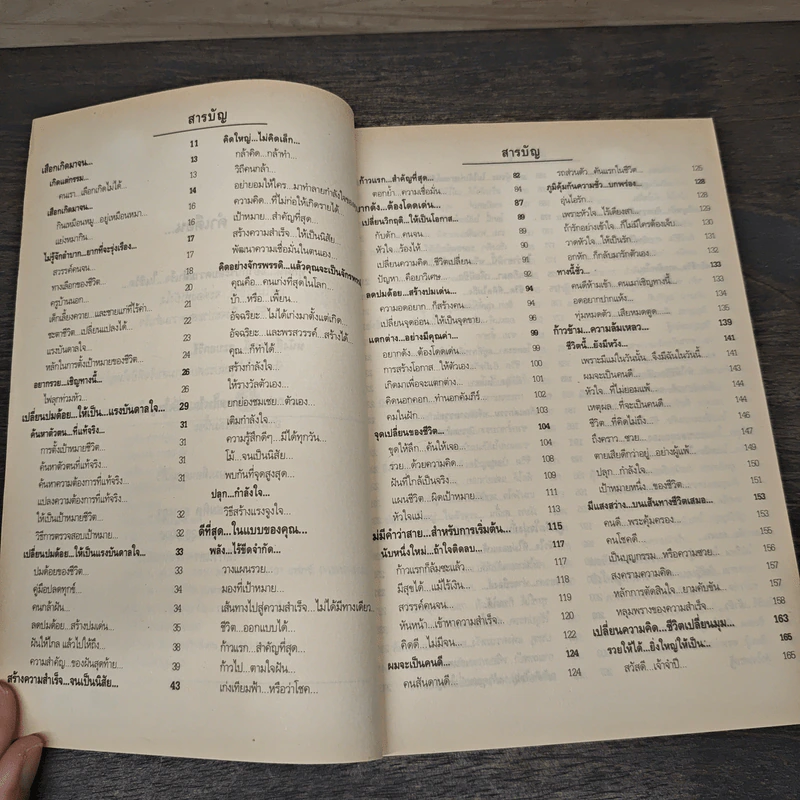 สารบัญ
เสือกเกิดมาจน... 11
เกิดแต่กรรม... 13
คนเรา...เลือกเกิดไม่ได้ 13
เสือกเกิดมาจน... 14
กินเหมือนหมู...อยู่เหมือนหมา... 16
แย่งหมากิน... 16
ไม่รู้จักลำบาก...ยากที่จะรุ่งเรือง... 17
สวรรค์คนจน... 17
ทางเลือกของชีวิต... 18
ครูบ้านนอก... 20
เด็กเลี้ยงควาย...และชายแก่ที่ไร้ค่า 21
ชะตาชีวิต...เปลี่ยนแปลงได้ 22
แรงบันดาลใจ... 22
หลักในการตั้งเป้าหมายของชีวิต... 24
อยากรวย...เชิญทางนี้... 26
ไฟลุกท่วมหัว... 26
เปลี่ยนปมด้อย...ให้เป็น...แรงบันดาลใจ... 29
ค้นหาตัวตน...ที่แท้จริง... 31
การตั้งเป้าหมายชีวิต... 31
ค้นหาตัวตนที่แท้จริง... 31
ค้นหาความต้องการที่แท้จริง... 31
แปลงความต้องการที่แท้จริง...
ให้เป็นเป้าหมายชีวิต... 32
วิธีการตรวจสอบเป้าหมาย... 32
เปลี่ยนปมด้อย...ให้เป็นแรงบันดาลใจ... 33
ปมด้อยของชีวิต... 33
คู่มือปลดทุกข์... 34
คนกล้าฝัน... 34
ลดปมด้อย...สร้างปมเด่น... 35
ฝันให้ไกล แล้วไปให้ถึง... 38
ความสำคัญ...ของฝันสุดท้าย... 39
สร้างความสำเร็จ...จนเป็นนิสัย... 43
คิดใหญ่...ไม่คิดเล็ก...
กล้าคิด...กล้าทำ...
วิถีคนกล้า...
อย่ายอมให้ใคร...มาทำลายกำลังใจของ
ความคิด...ที่ไม่ก่อให้เกิดรายได้
เป้าหมาย...สำคัญที่สุด...
สร้างความสำเร็จ...ให้เป็นนิสัย...
พัฒนาความเชื่อมั่นในตนเอง...
คิดอย่างจักรพรรดิ...แล้วคุณจะเป็นจักรพรรดิ
คุณคือ...คนเก่งที่สุดในโลก...
บ้า...หรือ...เพี้ยน...
อัจฉริยะ...ไม่ได้เก่งมาตั้งแต่เกิด...
อัจฉริยะ...และพรสวรรค์...สร้างได้...
คุณ...ก็ทำได้...
สร้างกำลังใจ...
ให้รางวัลตัวเอง...
ยกย่องชมเชย...ตัวเอง...
เติมกำลังใจ...
ความรู้สึกดีๆ...มีได้ทุกวัน...
โม้...จนเป็นนิสัย...
พบกันที่จุดสูงสุด...
ปลุก...กำลังใจ...
วิธีสร้างแรงจูงใจ...
ดีที่สุด...ในแบบของคุณ...
พลัง...ไร้ขีดจำกัด...
วางแผนรวย...
มองที่เป้าหมาย...
เส้นทางไปสู่ความสำเร็จ...ไม่ได้มีทางเดียว...
ชีวิต...ออกแบบได้...
ก้าวแรก...สำคัญที่สุด...
ก้าวไป...ตามใจฝัน...
เก่งเทียมฟ้า...หรือว่าโชค...
สารบัญ
ก้าวแรก...สำคัญที่สุด... 82
ตอกย้ำ...ความเชื่อมั่น... 84
ยากดัง...ต้องโดดเด่น... 87
เปลี่ยนวิกฤติ...ให้เป็นโอกาส... 89
กับดัก...คนจน... 89
หัวใจ...ร้องไห้... 90
เปลี่ยนความคิด...ชีวิตเปลี่ยน... 91
ปัญหา...คือยาวิเศษ... 92
ลดปมด้อย...สร้างปมเด่น... 94
ความอดอยาก...ก็สร้างคน... 94
เปลี่ยนจุดอ่อน...ให้เป็นจุดขาย... 96
แตกต่าง...อย่างมีคุณค่า... 99
อยากดัง...ต้องโดดเด่น... 99
การสร้างโอกาส...ให้ตัวเอง... 100
เกิดมาเพื่อจะแตกต่าง... 101
คิดนอกคอก...ทำนอกคัมภีร์... 102
คมในฝัก... 103
จุดเปลี่ยนของชีวิต... 104
ขุดให้ลึก...ค้นให้เจอ... 104
รวย...ด้วยความคิด... 108
ฝันที่ใกล้เป็นจริง... 109
แผนชีวิต...ผิดเป้าหมาย... 111
หัวใจแม่... 113
ไม่มีคำว่าสาย...สำหรับการเริ่มต้น... 115
นับหนึ่งใหม่...ถ้าใจติดลบ... 117
ก้าวแรกก็ล้มซะแล้ว... 117
มีสุขได้...แม้ไร้เงิน... 118
สวรรค์คนจน... 119
หันหน้า...เข้าหาความสำเร็จ... 120
คิดดี...ไม่มีจน... 122
ผมจะเป็นคนดี... 124
คนสันดานดี... 124
รถส่วนตัว...คันแรกในชีวิต... 125
ภูมิคุ้มกันความชั่ว...บกพร่อง... 128
รุ่นไอรัก... 128
เพราะหัวใจ...ไร้เดียงสา... 129
ถ้ารักอย่างเข้าใจ...ก็ไม่มีใครต้องเจ็บ... 130
วาดหัวใจ...ให้เป็นรัก... 131
อกหัก...ก็กลับมารักตัวเอง... 132
ทางนี้ชั่ว... 133
คนดีห้ามเข้า...คนเมาเชิญทางนี้... 133
อดอยากปากแห้ง... 134
ทุ่มหมดตัว...เสียหมดตูด... 135
ก้าวข้าม...ความล้มเหลว... 139
ชีวิตนี้...ยังมีหวัง... 141
เพราะมีแม่ในวันนั้น...จึงมีฉันในวันนี้... 141
ผมจะเป็นคนดี... 143
หัวใจ...ที่ไม่ยอมแพ้... 144
เหตุผล...ที่จะเป็นคนดี... 144
ชีวิต...ที่คิดไม่ถึง... 146
ถึงคราว...ซวย... 147
ตายเสียดีกว่าอยู่...อย่างผู้แพ้... 149
ปลุก...กำลังใจ... 150
เป้าหมายหนึ่ง...ของชีวิต... 151
มีแสงสว่าง...บนเส้นทางชีวิตเสมอ... 153
คนดี...พระคุ้มครอง... 153
คนโชคดี... 155
เป็นบุญกรรม...หรือความซวย... 156
สงครามความคิด... 156
หลักการตัดสินใจ...ยามคับขัน... 157
หลุมพรางของความสำเร็จ... 158
เปลี่ยนความคิด...ชีวิตเปลี่ยนมุม... 163
รวยให้ได้...ยิ่งใหญ่ให้เป็น... 165
สวัสดี...เจ้าจำปี... 165